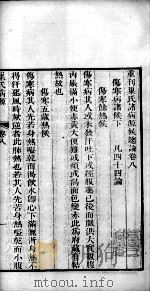 重刊巢氏諸病源候總論卷八
傷寒病諸候下 凡四十四論
傷寒餘熱候
傷寒病其人或未發汗吐下或經服藥已後而脈洪大實數腹
內脹滿小便赤黃大便難或煩或渴面色變赤此為腑臟有結
熱故也
傷寒五臟熱候
傷寒病其人先苦身熱嗌乾而渴飲水即心下滿洒淅身熱不
得汗惡風時咳逆者此肺熱也若其人先苦身熱嗌乾而小腹
巢氏病源 卷八